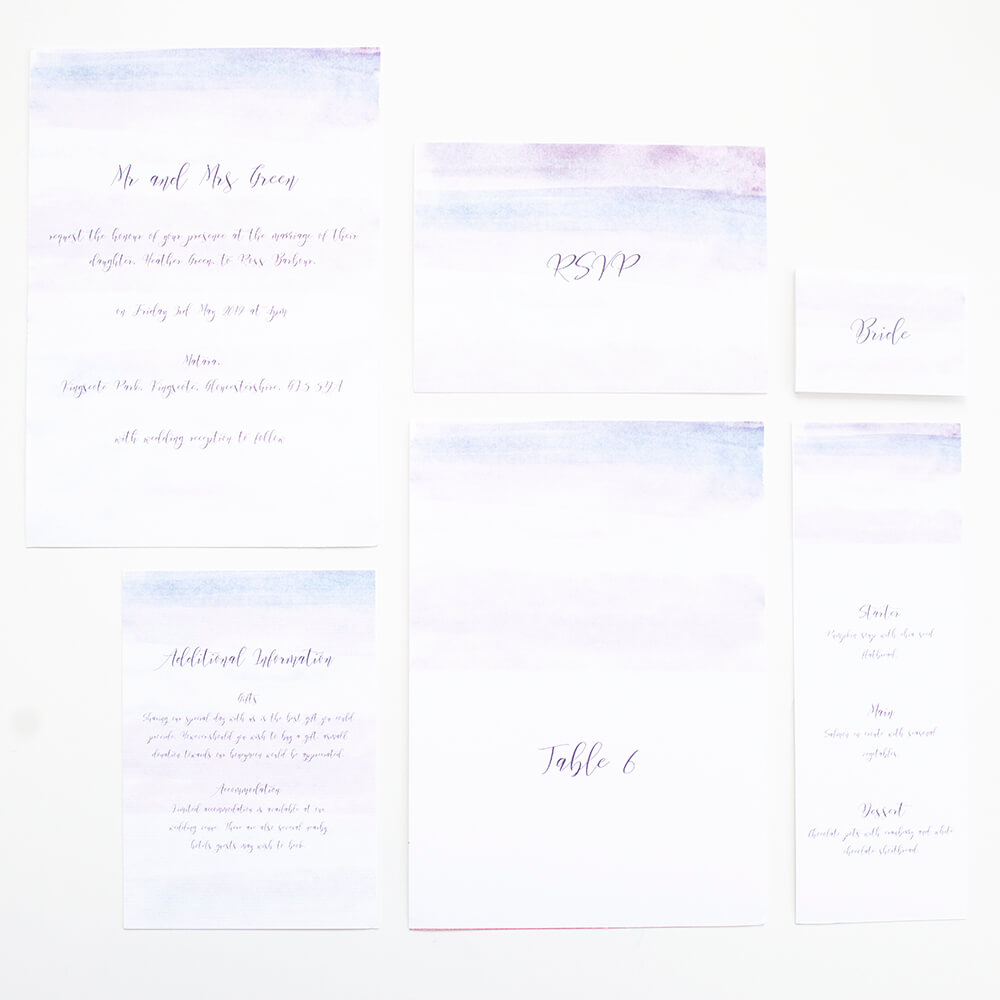 Mr and Mrs Green
request the honour of your presence at the marriage of their
daughter, Heather Green, to Ross Barbour,
on Friday 3rd May 2019 at 1pm
Matara,
Kingscote Park, Kingscote, Gloucestershire,
with wedding reception to follow
RSVP
Bride
Additional Information
Gifts
Sharing our special day with us is the best gift you could
provide. However should you wish to buy a gift, a small
donation towards our honeymoon would be appreciated.
Accommodation
Limited accommodation is available at our
wedding venue. There are also several nearby
hotels guests may wish to book.
Table 6
Starter
Pumpkin soup with chia seed
flatbread.
Main
Salmon en croute with seasonal
vegetables.
Dessert
Chocolate pots with cranberry and white
chocolate shortbread.